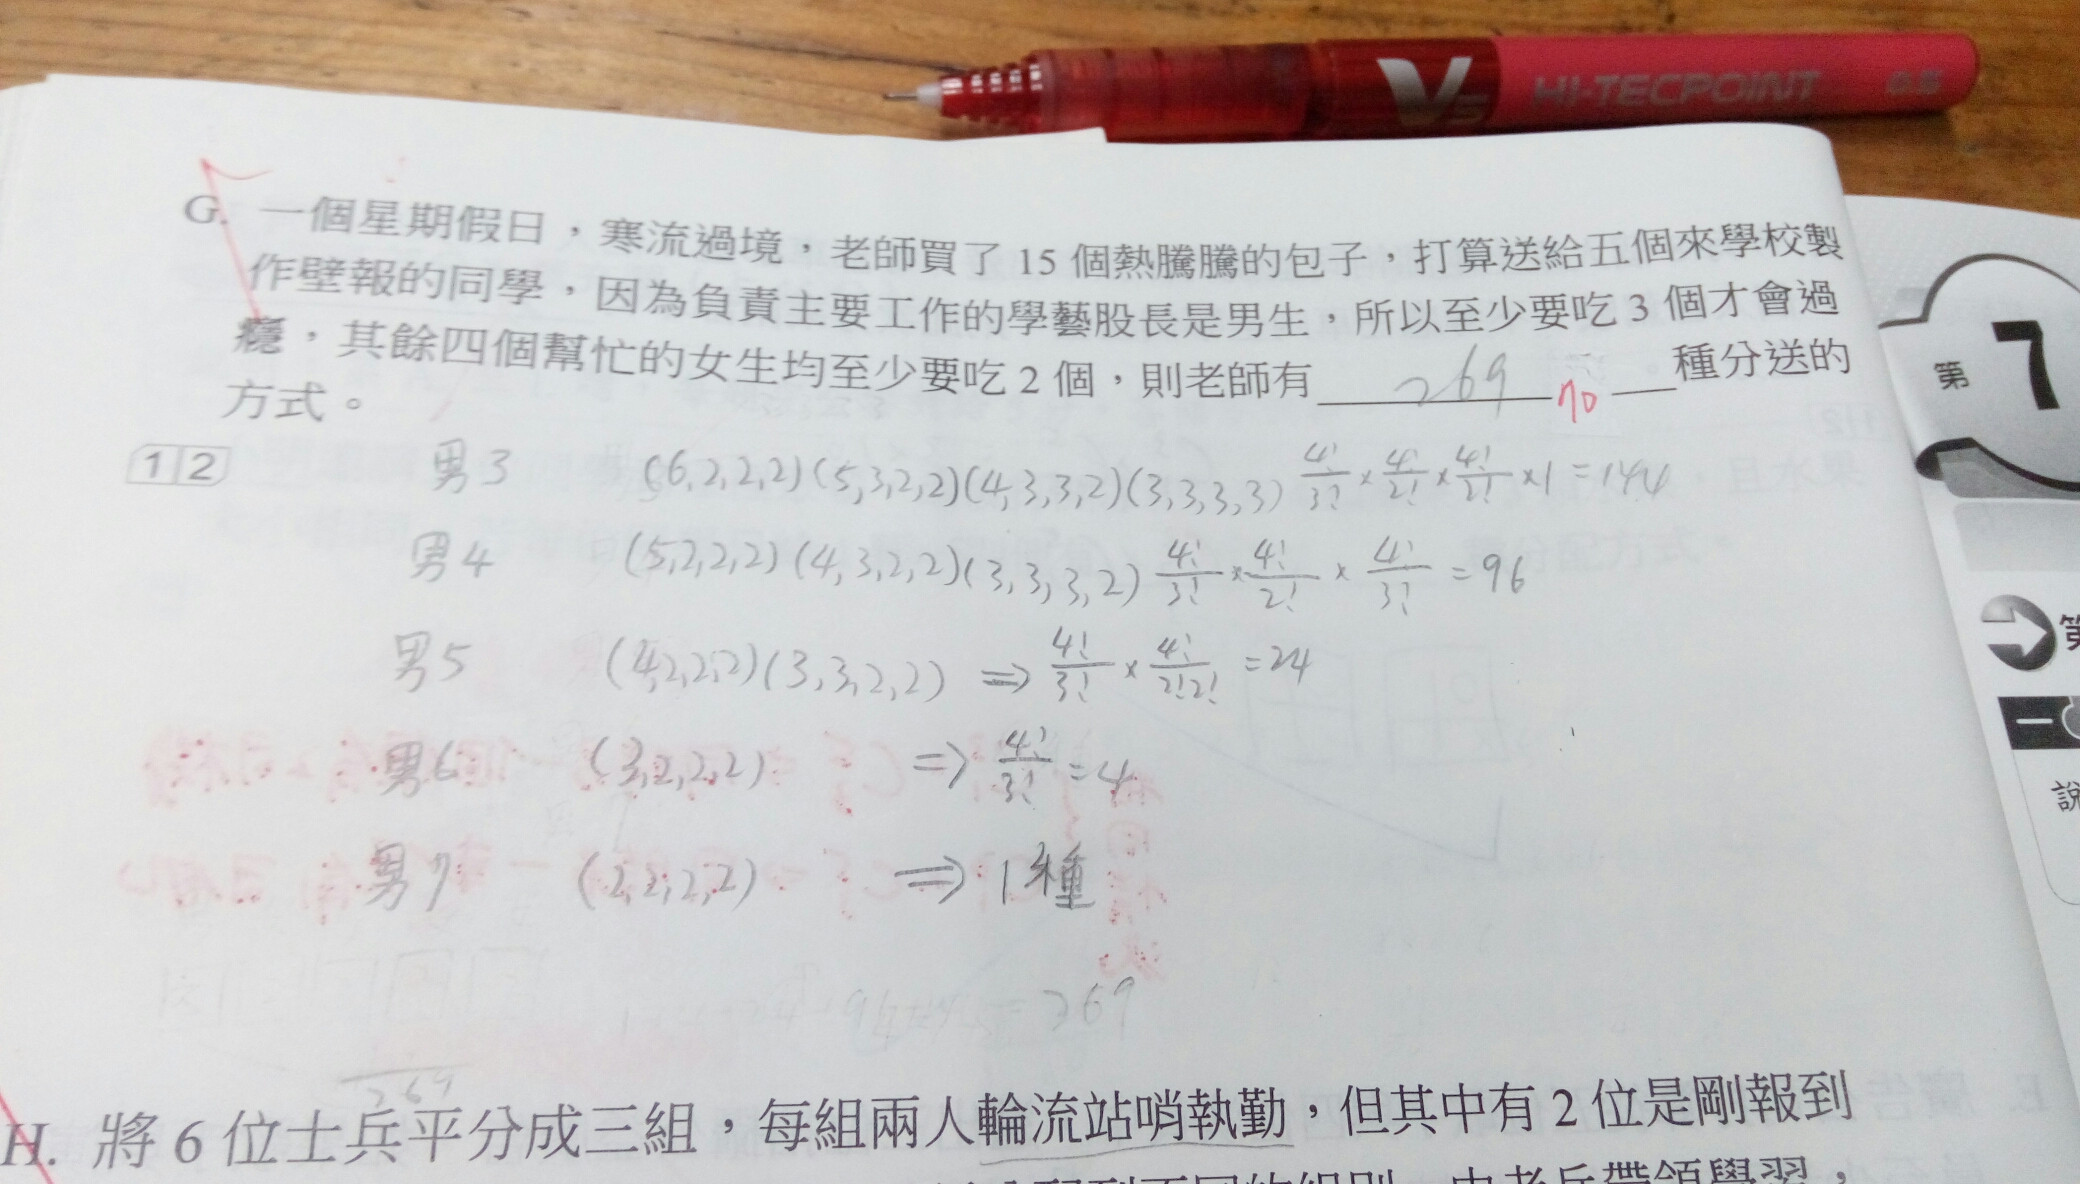 V5 HI-TECPOINT
G. 一個星期假日，寒流過境，老師買了 15 個熱騰騰的包子，打算送給五個來學校製
作壁報的同學，因為負責主要工作的學藝股長是男生，所以至少要吃 3 個才會過
癮，其餘四個幫忙的女生均至少要吃 2 個，則老師有 269 70 種分送的
方式。
12
男3 (6,2,2,2)(5,3,2,2)(4,3,3,2)(3,3,3,3) 4!/3! × 4!/2! × 4!/2! ×1 = 144
男4 (5,2,2,2)(4,3,2,2)(3,3,3,2) 4!/3! × 4!/2! × 4!/3! = 96
男5 (4,2,2,2)(3,3,2,2) ⇒ 4!/3! × 4!/2!2! = 24
男6 (3,2,2,2) ⇒ 4!/3! = 4
男7 (2,2,2,2) ⇒ 1種
= 269
269
H. 將 6 位士兵平分成三組，每組兩人輪流站哨執勤，但其中有 2 位是剛報到
第 7
第
一
說